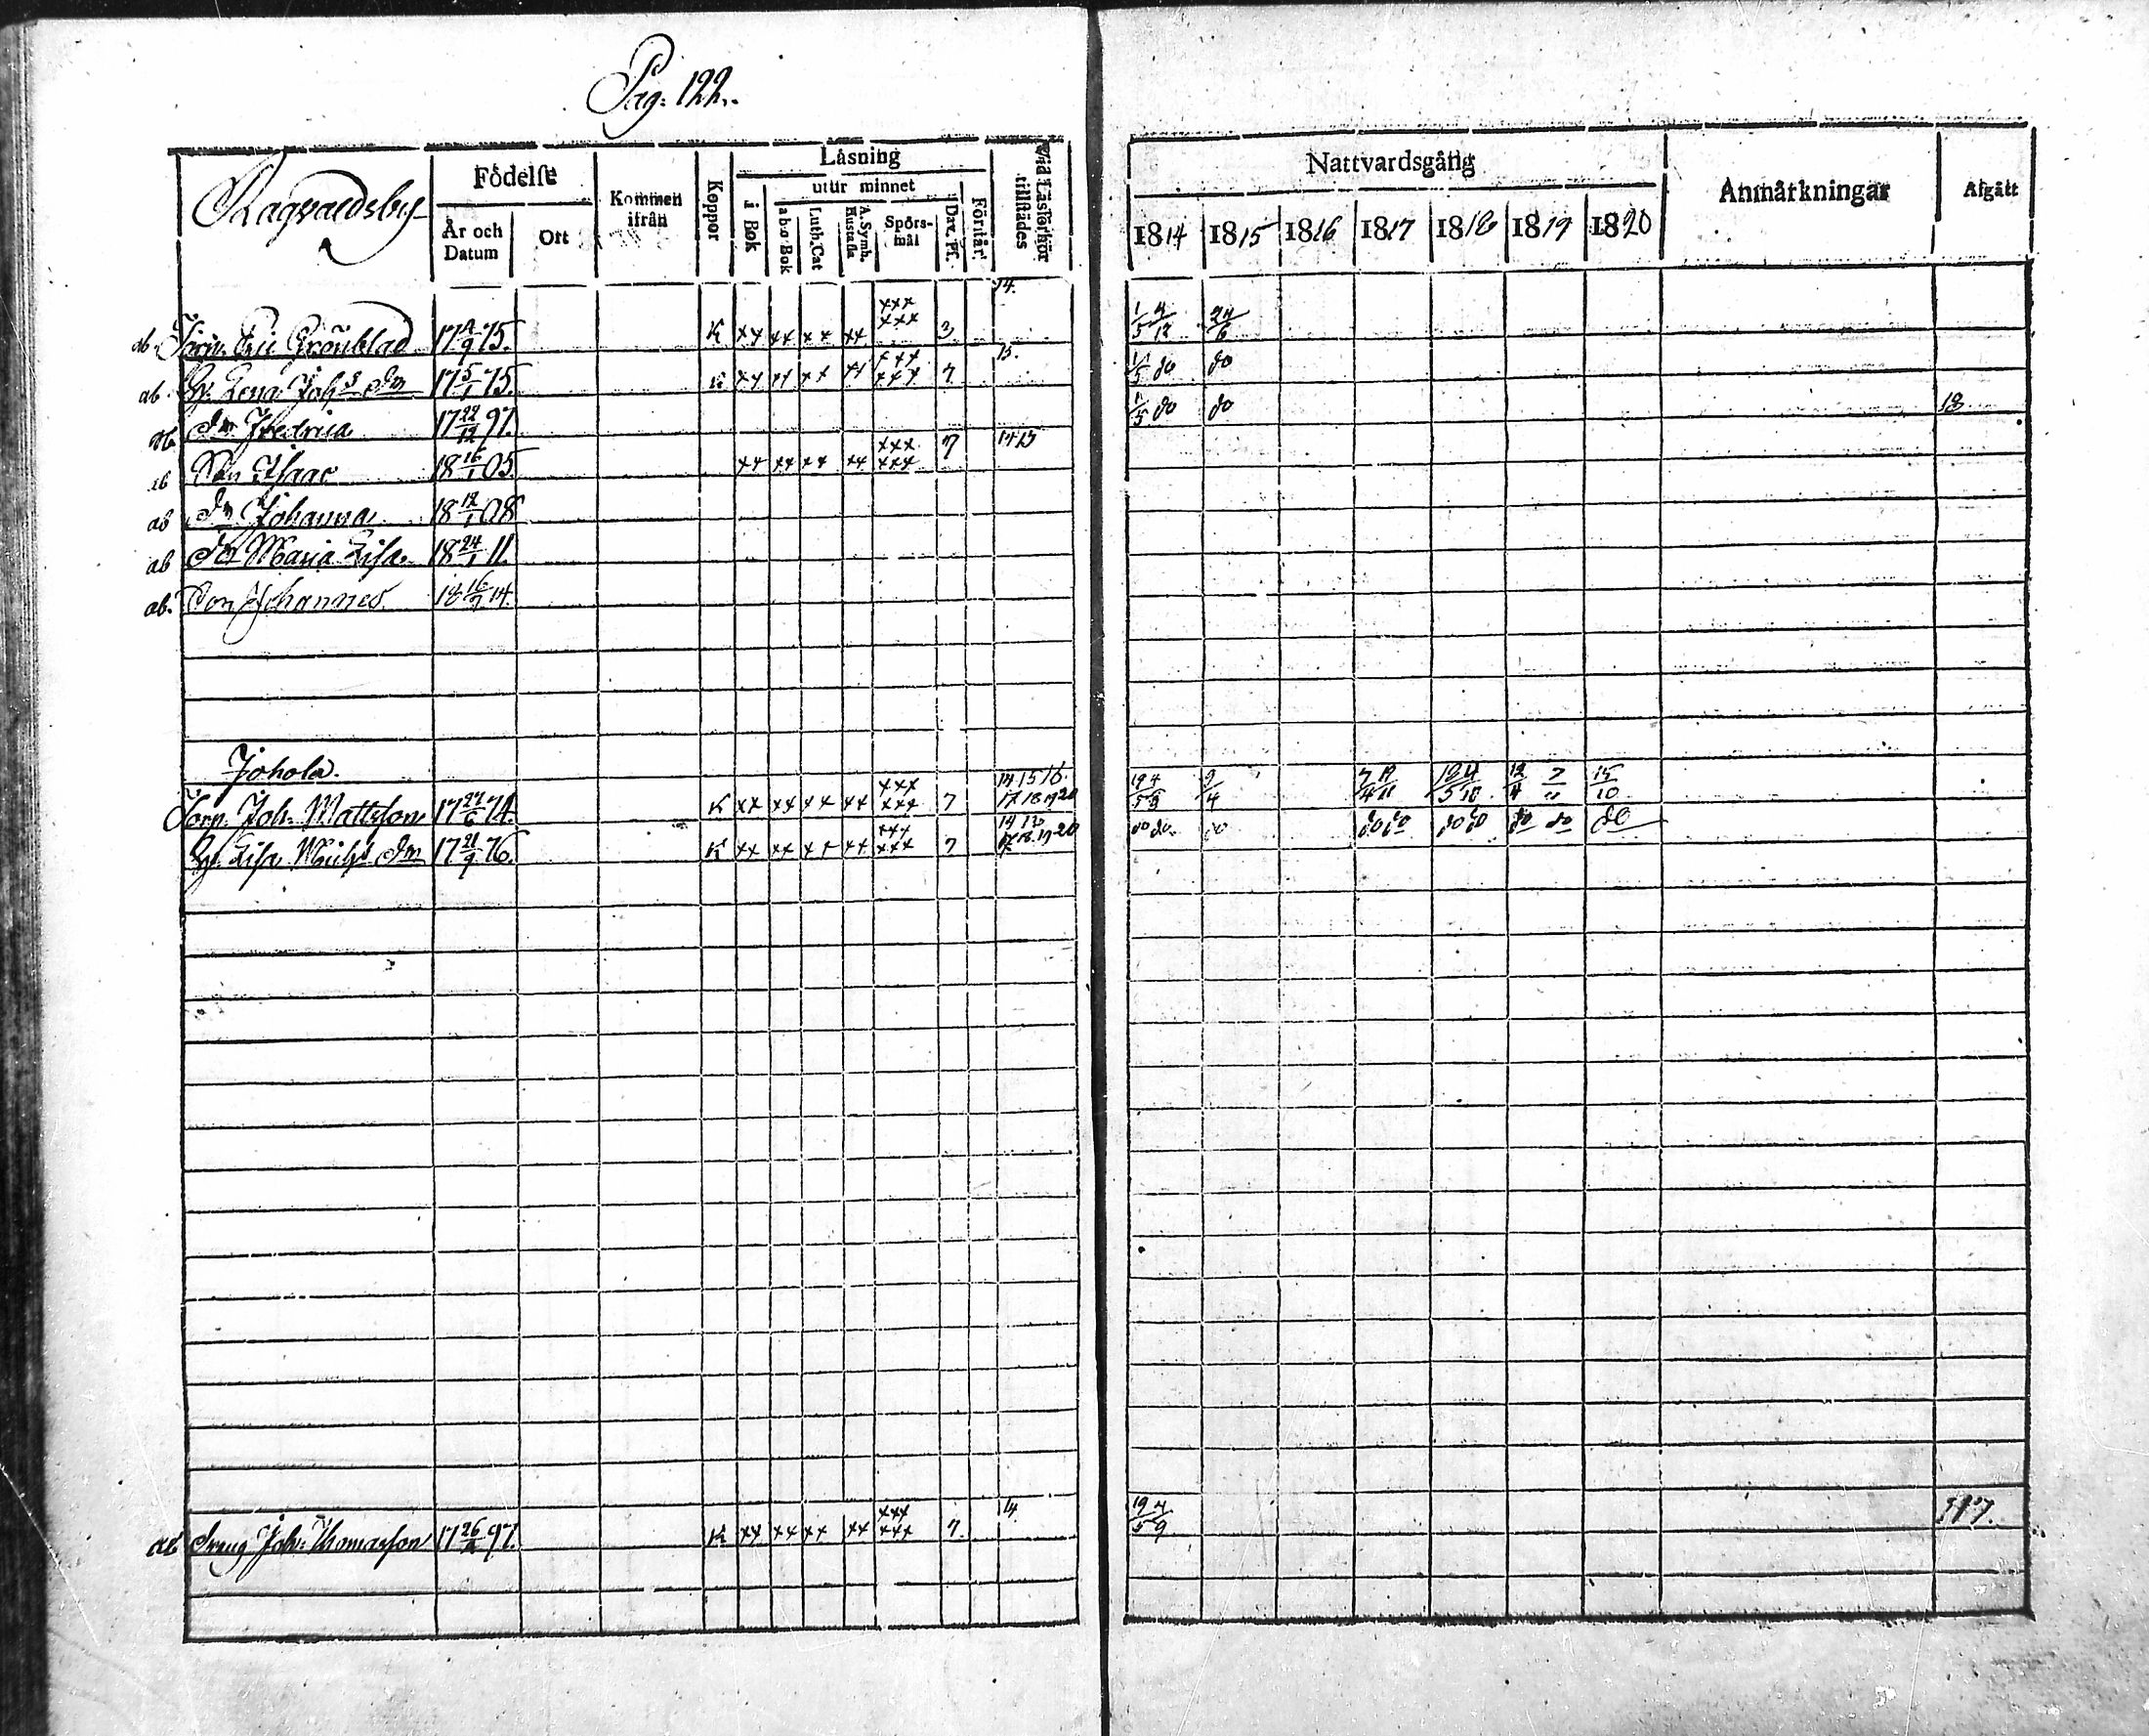 Pag: 122.
Ragvaldsby
Födelse
År och Datum
Ort
Kommen ifrån
Koppor
Läsning
i Bok
utur minnet
a b c Bok
Luth. Cat
A. Symb. Hustafla
Spörs-mål
Dav. Ps.
Förstår
Vid Läsförhör tillstädes
Nattvardsgång
1814 1815 1816 1817 1818 1819 1820
Anmärkningar
Afgått
ab Torp. Eric Grönblad 17 4/9 75. K xx xx xx xx xxx xxx 3 14. 1/5 4/12 24/6
ab. H. Lena Johs dr 17 5/1 75. K xx xx xx xx xxx xxx 7. 15. 1/5 do do
dr Fredrica 17 22/12 97. 1/5 do do 18
ab Son Isaac 18 16/1 05. xx xx xx xx xxx xxx 7 14 15
ab dr Johanna 18 12/1 08
ab dr Maria Lisa 18 24/1 11.
ab. Son Johannes 18 16/7 14.
Johola.
Torp. Joh. Mattsson 17 24/6 74. K xx xx xx xx xxx xxx 7 14 15 16. 17 18 19 20 19/5 4/9 9/4 15/10
H. Lisa Michs dr 17 21/9 76. K xx xx xx xx xxx xxx 7 17 18 19 20 do do do do do do do do do do
ab Dreng Joh: Thomasson 17 26/ 97. K xx xx xx xx xxx xxx 7. 14 19/5 4/9